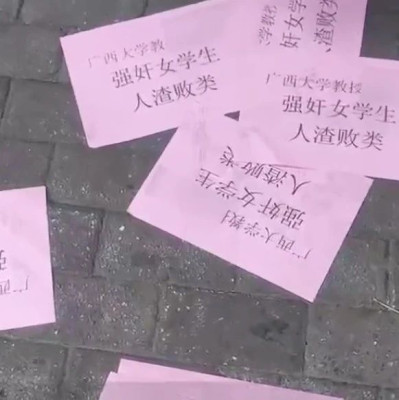 广西大学教
强奸女学生
人渣败类
学教授
奸女学生
人渣败类
广西大学教授
强奸女学生
人渣败类
广西大学教
强奸女学生
人渣败类
广西